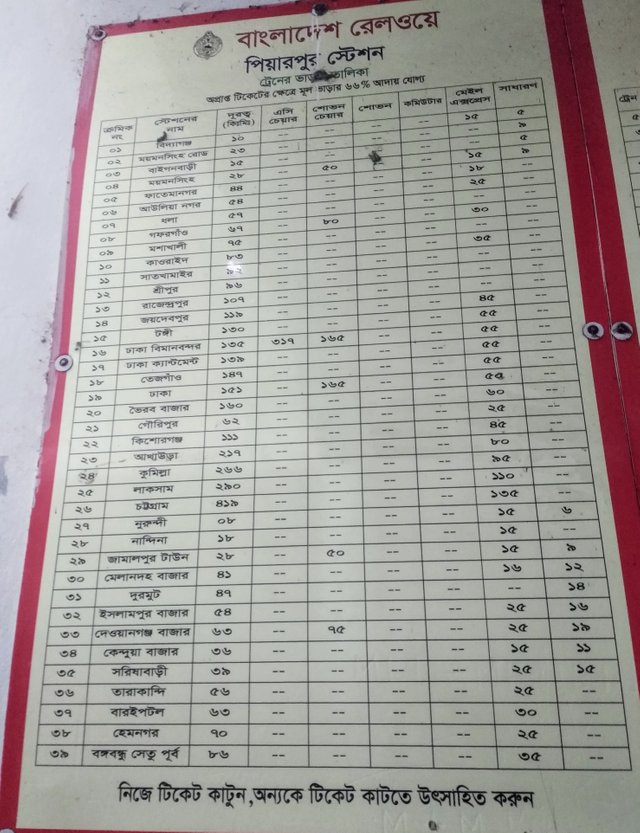 বাংলাদেশ রেলওয়ে
পিয়ারপুর স্টেশন
ট্রেনের ভাড়ার তালিকা
অপ্রাপ্ত টিকেটের ক্ষেত্রে মূল ভাড়ার ৬৬% আদায় যোগ্য
ক্রমিক নং স্টেশনের নাম দূরত্ব (কিঃমিঃ) এসি চেয়ার শোভন চেয়ার শোভন কমিউটার মেইল এক্সপ্রেস সাধারণ
০১ বিদ্যাগঞ্জ ১০ -- -- -- -- ১৫ ৫
০২ ময়মনসিংহ রোড ২৩ -- -- -- -- -- ৯
০৩ বাইগনবাড়ী ১৫ -- -- -- -- -- ৫
০৪ ময়মনসিংহ ২৮ -- ৫০ -- -- ১৫ ৯
০৫ ফাতেমানগর ৪৪ -- -- -- -- ১৮ --
০৬ আউলিয়া নগর ৫৪ -- -- -- -- ২৫ --
০৭ ধলা ৫৭ -- -- -- -- -- --
০৮ গফরগাঁও ৬৭ -- ৮০ -- -- ৩০ --
০৯ মশাখালী ৭৫ -- -- -- -- -- --
১০ কাওরাইদ ৮৩ -- -- -- -- ৩৫ --
১১ সাতখামাইর ৯২ -- -- -- -- -- --
১২ শ্রীপুর ৯৬ -- -- -- -- -- --
১৩ রাজেন্দ্রপুর ১০৭ -- -- -- -- -- --
১৪ জয়দেবপুর ১১৯ -- -- -- -- ৪৫ --
১৫ টঙ্গী ১৩০ -- -- -- -- ৫৫ --
১৬ ঢাকা বিমানবন্দর ১৩৫ ৩১৭ ১৬৫ -- -- ৫৫ --
১৭ ঢাকা ক্যান্টমেন্ট ১৩৯ -- -- -- -- ৫৫ --
১৮ তেজগাঁও ১৪৭ -- -- -- -- ৫৫ --
১৯ ঢাকা ১৫১ -- ১৬৫ -- -- ৫৫ --
২০ ভৈরব বাজার ১৬০ -- -- -- -- ৬০ --
২১ গৌরিপুর ৬২ -- -- -- -- ২৫ --
২২ কিশোরগঞ্জ ১১১ -- -- -- -- ৪৫ --
২৩ আখাউড়া ২১৭ -- -- -- -- ৮০ --
২৪ কুমিল্লা ২৬৬ -- -- -- -- ৯৫ --
২৫ লাকসাম ২৯০ -- -- -- -- ১১০ --
২৬ চট্টগ্রাম ৪১৯ -- -- -- -- ১৩৫ --
২৭ নুরুন্দী ০৮ -- -- -- -- ১৫ ৬
২৮ নান্দিনা ১৮ -- -- -- -- ১৫ --
২৯ জামালপুর টাউন ২৮ -- ৫০ -- -- ১৫ ৯
৩০ মেলানদহ বাজার ৪১ -- -- -- -- ১৬ ১২
৩১ দুরমুট ৪৭ -- -- -- -- -- ১৪
৩২ ইসলামপুর বাজার ৫৪ -- -- -- -- ২৫ ১৬
৩৩ দেওয়ানগঞ্জ বাজার ৬৩ -- ৭৫ -- -- ২৫ ১৯
৩৪ কেন্দুয়া বাজার ৩৬ -- -- -- -- ১৫ ১১
৩৫ সরিষাবাড়ী ৩৯ -- -- -- -- ২৫ ১৫
৩৬ তারাকান্দি ৫৬ -- -- -- -- ২৫ --
৩৭ বারইপটল ৬৩ -- -- -- -- ৩০ --
৩৮ হেমনগর ৭০ -- -- -- -- ২৫ --
৩৯ বঙ্গবন্ধু সেতু পূর্ব ৮৬ -- -- -- -- ৩৫ --
নিজে টিকেট কাটুন,অন্যকে টিকেট কাটতে উৎসাহিত করুন
ট্রেন